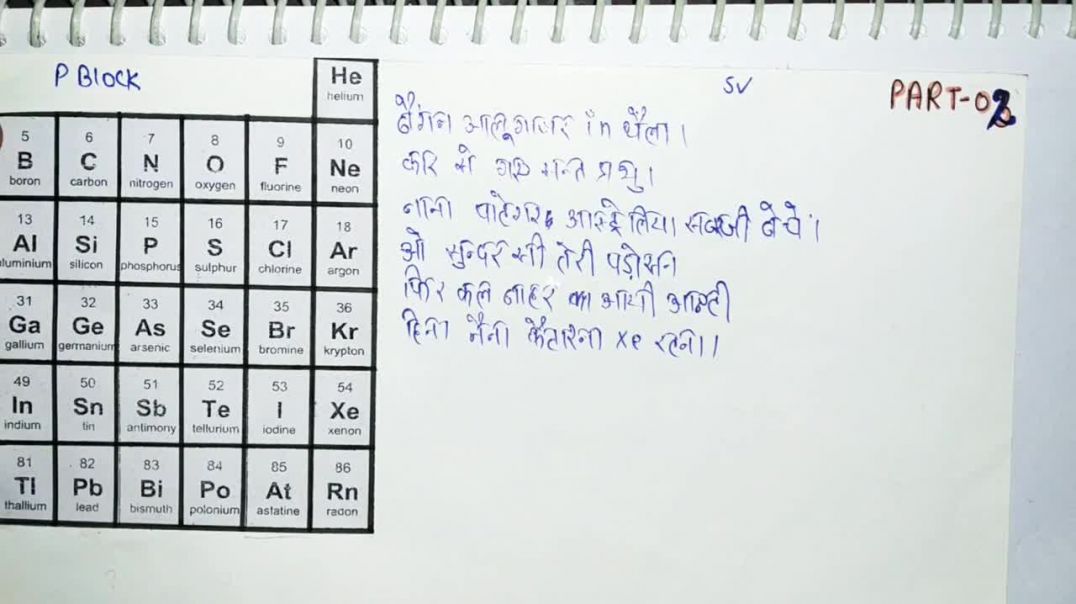 P BLOCK
SV
PART-02
He
helium
5 6 7 8 9 10
B C N O F Ne
boron carbon nitrogen oxygen fluorine neon
13 14 15 16 17 18
Al Si P S Cl Ar
luminium silicon phosphorus sulphur chlorine argon
31 32 33 34 35 36
Ga Ge As Se Br Kr
gallium germanium arsenic selenium bromine krypton
49 50 51 52 53 54
In Sn Sb Te I Xe
indium tin antimony tellurium iodine xenon
81 82 83 84 85 86
Tl Pb Bi Po At Rn
thallium lead bismuth polonium astatine radon
बैंगन आलू गाजर in थैला।
प्रभु।
नाना लिया सब्जी बेचे।
ओ सुन्दर सी तेरी पड़ोसन
फिर कल बाहर का आयी आन्टी
हिना नैना Xe रहना।